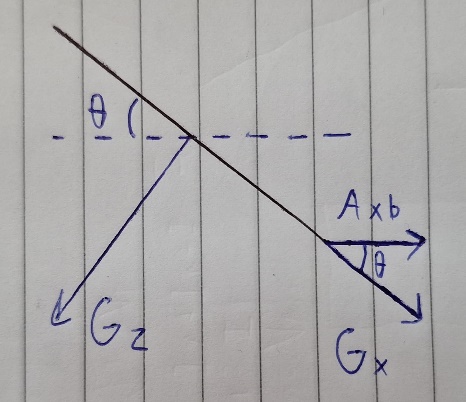 θ
A x b
θ
G z
G x